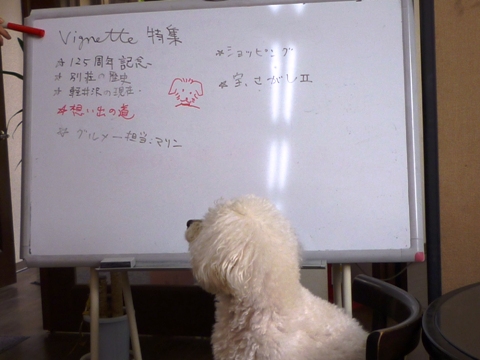 Vignette 特集
* 125周年記念~
* 別荘の歴史
* 軽井沢の現在.
*想い出の道
* グルメー担当:マリン
*ショッピング
*宝さがしⅡ